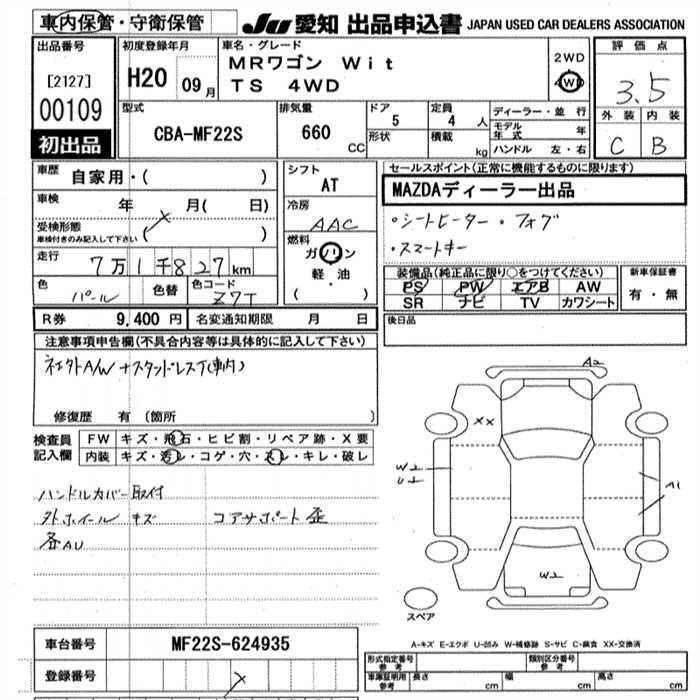 車内保管・守衛保管 JU 愛知 出品申込書 JAPAN USED CAR DEALERS ASSOCIATION
出品番号 [2127] 00109 初出品
初度登録年月 H20 09月
車名・グレード MRワゴン Wit TS 4WD
2WD 4WD
評価点 3.5
外装 内装 C B
型式 CBA-MF22S
排気量 660 CC
ドア 5 形状
定員 4 人 積載 kg
ディーラー・並行
モデル年式 年
ハンドル 左・右
車歴 自家用・( )
車検 年 月( 日)
受検形態 車検付きのみ記入して下さい ( )
走行 7万1千827km
色 パール 色替 色コード Z7T
シフト AT
冷房 AAC
燃料 ガソリン 軽・油 ( )
セールスポイント(正常に機能するものに限ります)
MAZDAディーラー出品
・シートヒーター・フォグ
・スマートキー
装備品(純正品に限り○をつけてください)
PS PW エアB AW
SR ナビ TV カワシート
新車保証書 有・無
R券 9,400 円 名変通知期限 月 日
後日品
注意事項申告欄(不具合内容等は具体的に記入して下さい)
社外A/W+スタッドレスT(車内)
修復歴 有 (箇所 )
検査員記入欄
FW キズ・飛石・ヒビ割・リペア跡・X要
内装 キズ・汚レ・コゲ・穴・スレ・キレ・破レ
ハンドルカバー取付
外ホイールキズ コアサポート歪
各AU
A2
XX
W2
U2
A1
W2
スペア
A-キズ E-エクボ U-凹み W-補修跡 S-サビ C-腐食 XX-交換済
車台番号 MF22S-624935
登録番号
型式指定番号 参考 類別区分番号 参考
車庫証明用 参考 長さ cm 幅 cm 高さ cm